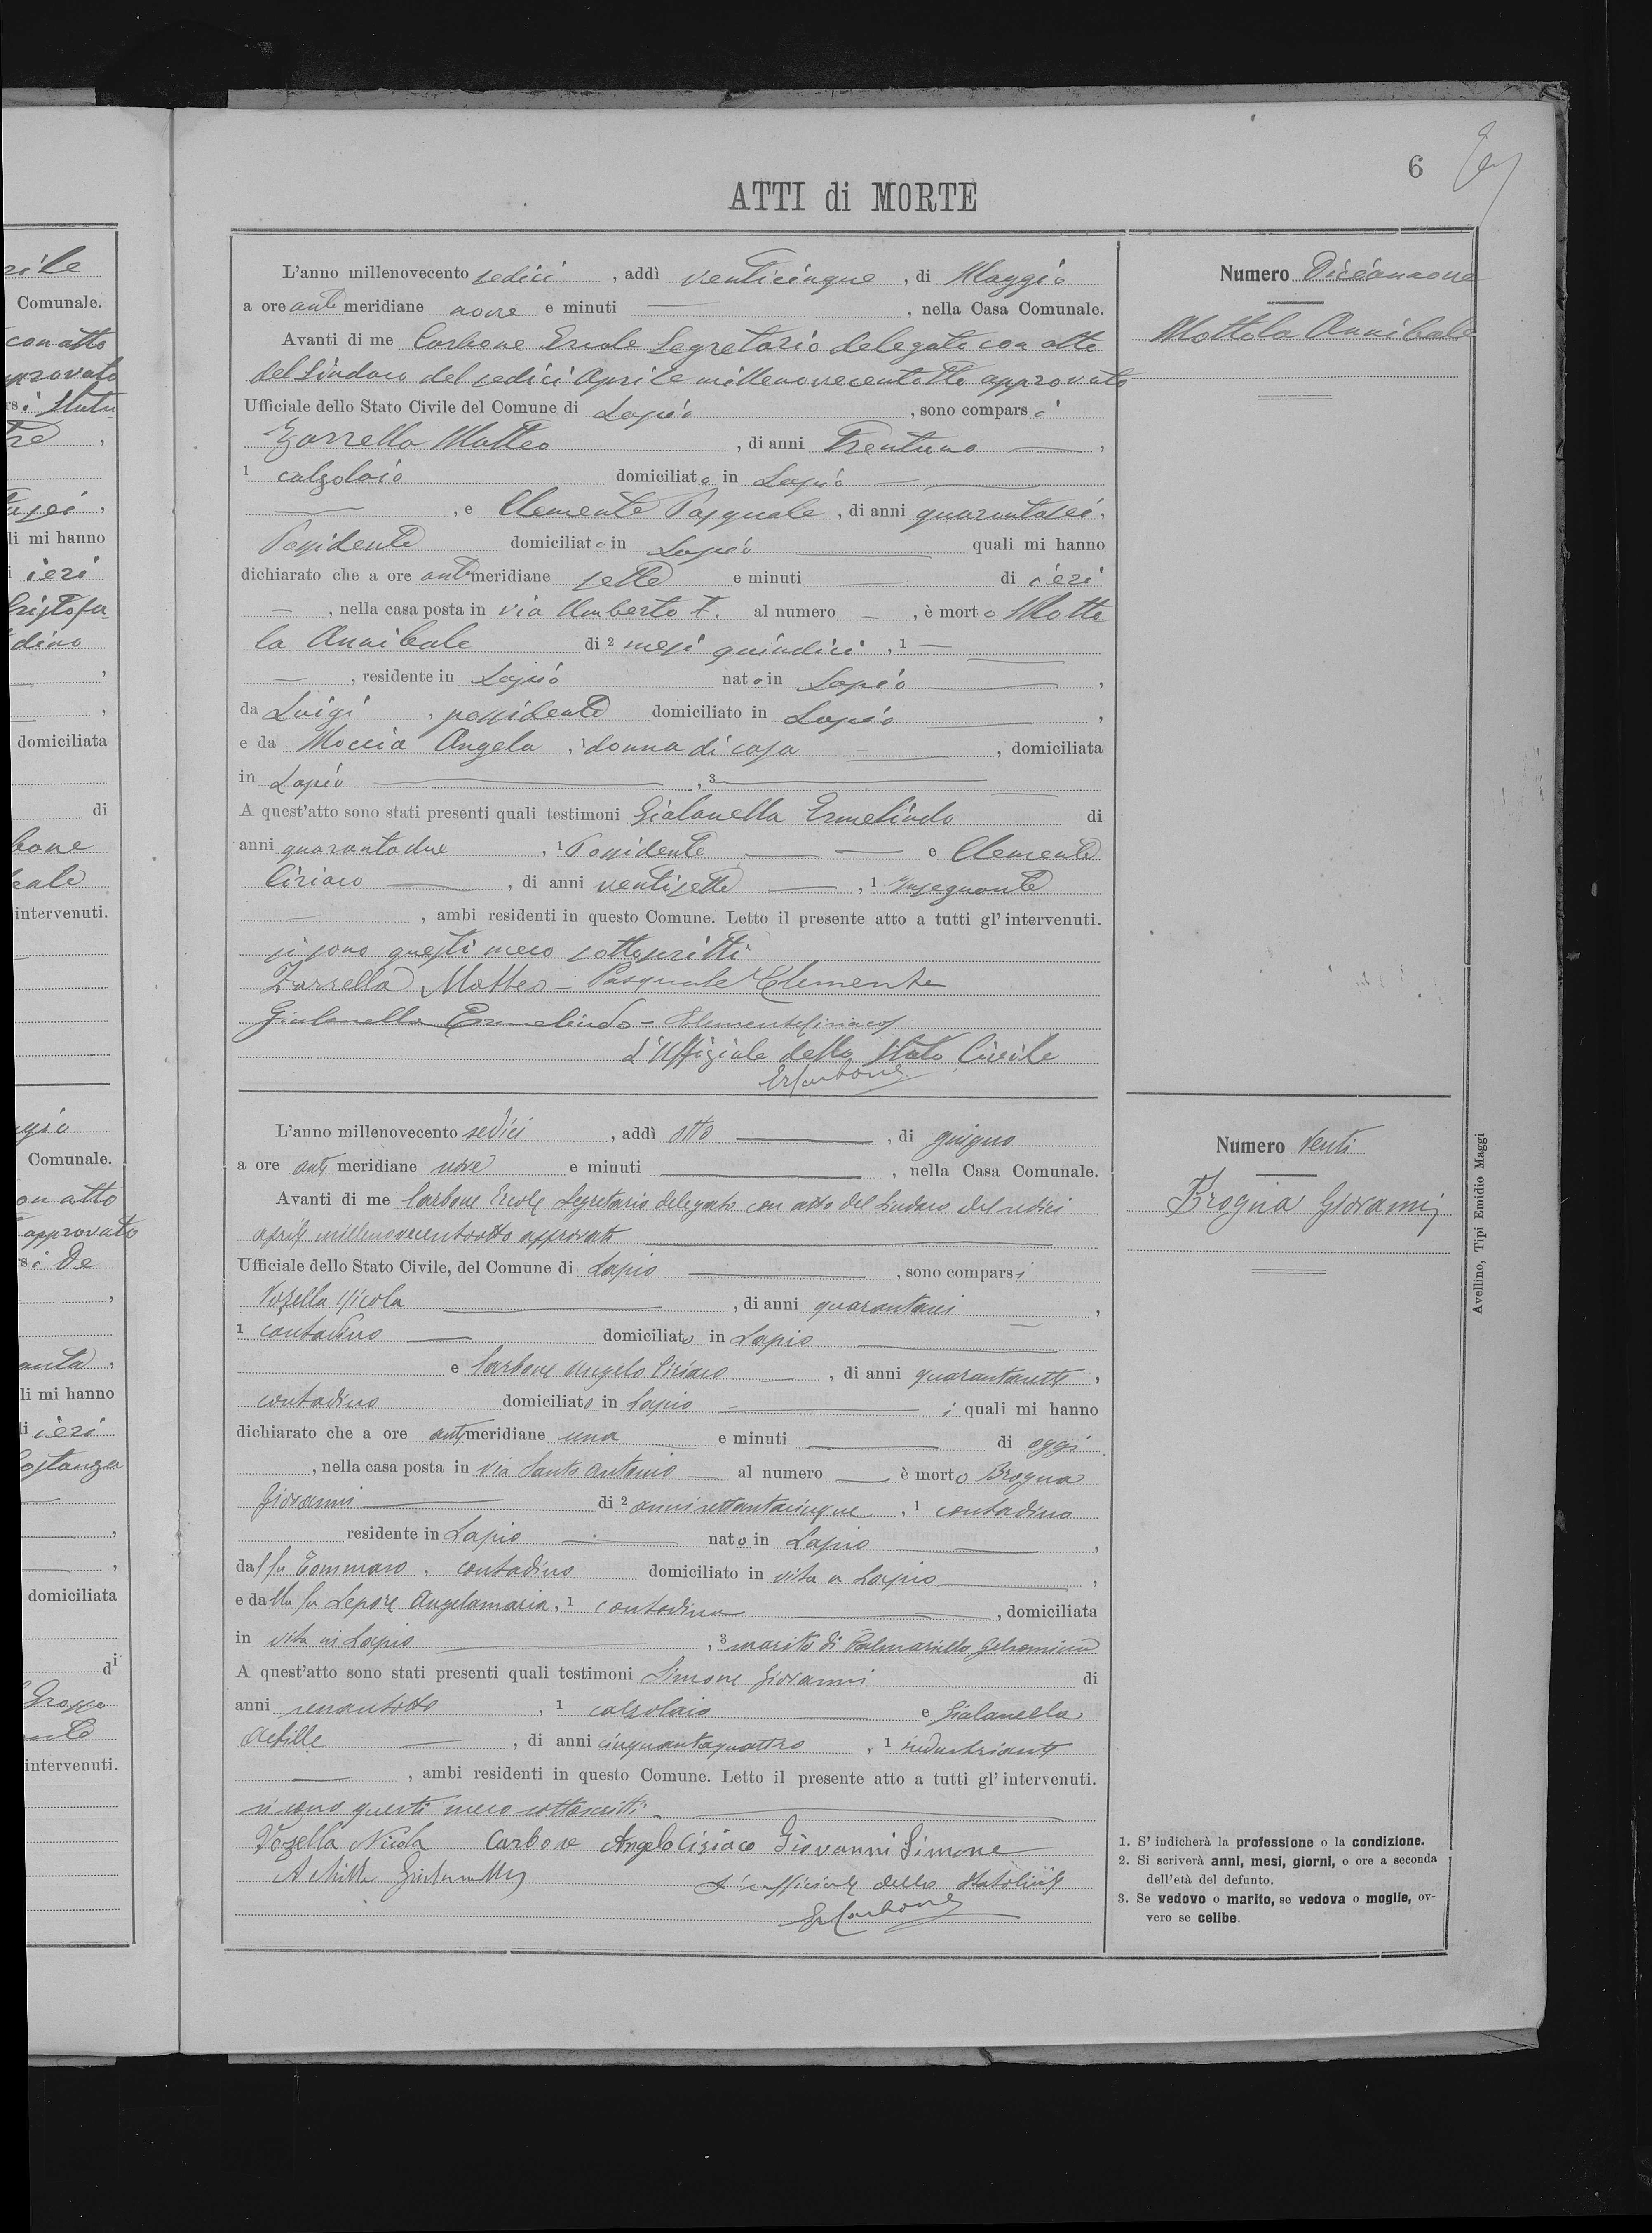 6
ATTI di MORTE
L'anno millenovecento sedici, addì venticinque, di Maggio
a ore ante meridiane nove e minuti —, nella Casa Comunale.
Avanti di me Carbone Ercole Segretario delegato con atto
del Sindaco del sedici Aprile millenovecentotto approvato
Ufficiale dello Stato Civile del Comune di Lapio, sono comparsi
Zarrella Matteo, di anni Trentuno —,
1 calzolaio domiciliato in Lapio —
—, e Clemente Pasquale, di anni quarantasei,
Possidente domiciliato in Lapio — quali mi hanno
dichiarato che a ore antimeridiane sette e minuti — di ieri
—, nella casa posta in via Umberto I. al numero —, è morto Motto
la Annibale di 2 mesi quindici, 1 —
—, residente in Lapio nato in Lapio —,
da Luigi, possidente domiciliato in Lapio —,
e da Moccia Angela, 1 donna di casa —, domiciliata
in Lapio —, 3 —
A quest'atto sono stati presenti quali testimoni Gialanella Ermelindo di
anni quarantadue, 1 Possidente — e Clemente
Ciriaco —, di anni ventisette —, 1 Insegnante
—, ambi residenti in questo Comune. Letto il presente atto a tutti gl'intervenuti.
si sono questi meco sottoscritti
Zarrella Matteo - Pasquale Clemente
Gialanella Ermelindo - Clemente Ciriaco
L'Uffiziale dello Stato Civile
ErCarbone
Numero Diciannove
Mottola Annibale
L'anno millenovecento sedici, addì otto —, di giugno
a ore anti meridiane nove e minuti —, nella Casa Comunale.
Avanti di me Carbone Ercole Segretario delegato con atto del Sindaco del sedici
aprile millenovecentootto approvato —
Ufficiale dello Stato Civile, del Comune di Lapio —, sono comparsi
Vozella Nicola —, di anni quarantasei —,
1 contadino — domiciliato in Lapio —
e Carbone Angelo Ciriaco —, di anni quarantasette,
contadino domiciliato in Lapio — i quali mi hanno
dichiarato che a ore antimeridiane una — e minuti — di oggi
, nella casa posta in Via Santo Antonio — al numero — è morto Brogna
Giovanni — di 2 anni settantacinque, 1 contadino
residente in Lapio — nato in Lapio —,
dal fu Tommaso, contadino domiciliato in vita a Lapio —,
e dalla fu Lepore Angelamaria, 1 contadina —, domiciliata
in vita in Lapio —, 3 marito di Gelsomina
A quest'atto sono stati presenti quali testimoni Simone Giovanni di
anni, 1 calzolaio — e Gialanella
Achille —, di anni cinquantaquattro, 1 industriante
—, ambi residenti in questo Comune. Letto il presente atto a tutti gl'intervenuti.
si sono questi meco sottoscritti. —
Vozella Nicola Carbone Angelo Ciriaco Giovanni Simone
Achille Gialanella
L'ufficiale dello Stato Civile
ErCarbone
Numero Venti
Brogna Giovanni
1. S'indicherà la professione o la condizione.
2. Si scriverà anni, mesi, giorni, o ore a seconda
dell'età del defunto.
3. Se vedovo o marito, se vedova o moglie, ov-
vero se celibe.
Avellino, Tipi Emidio Maggi